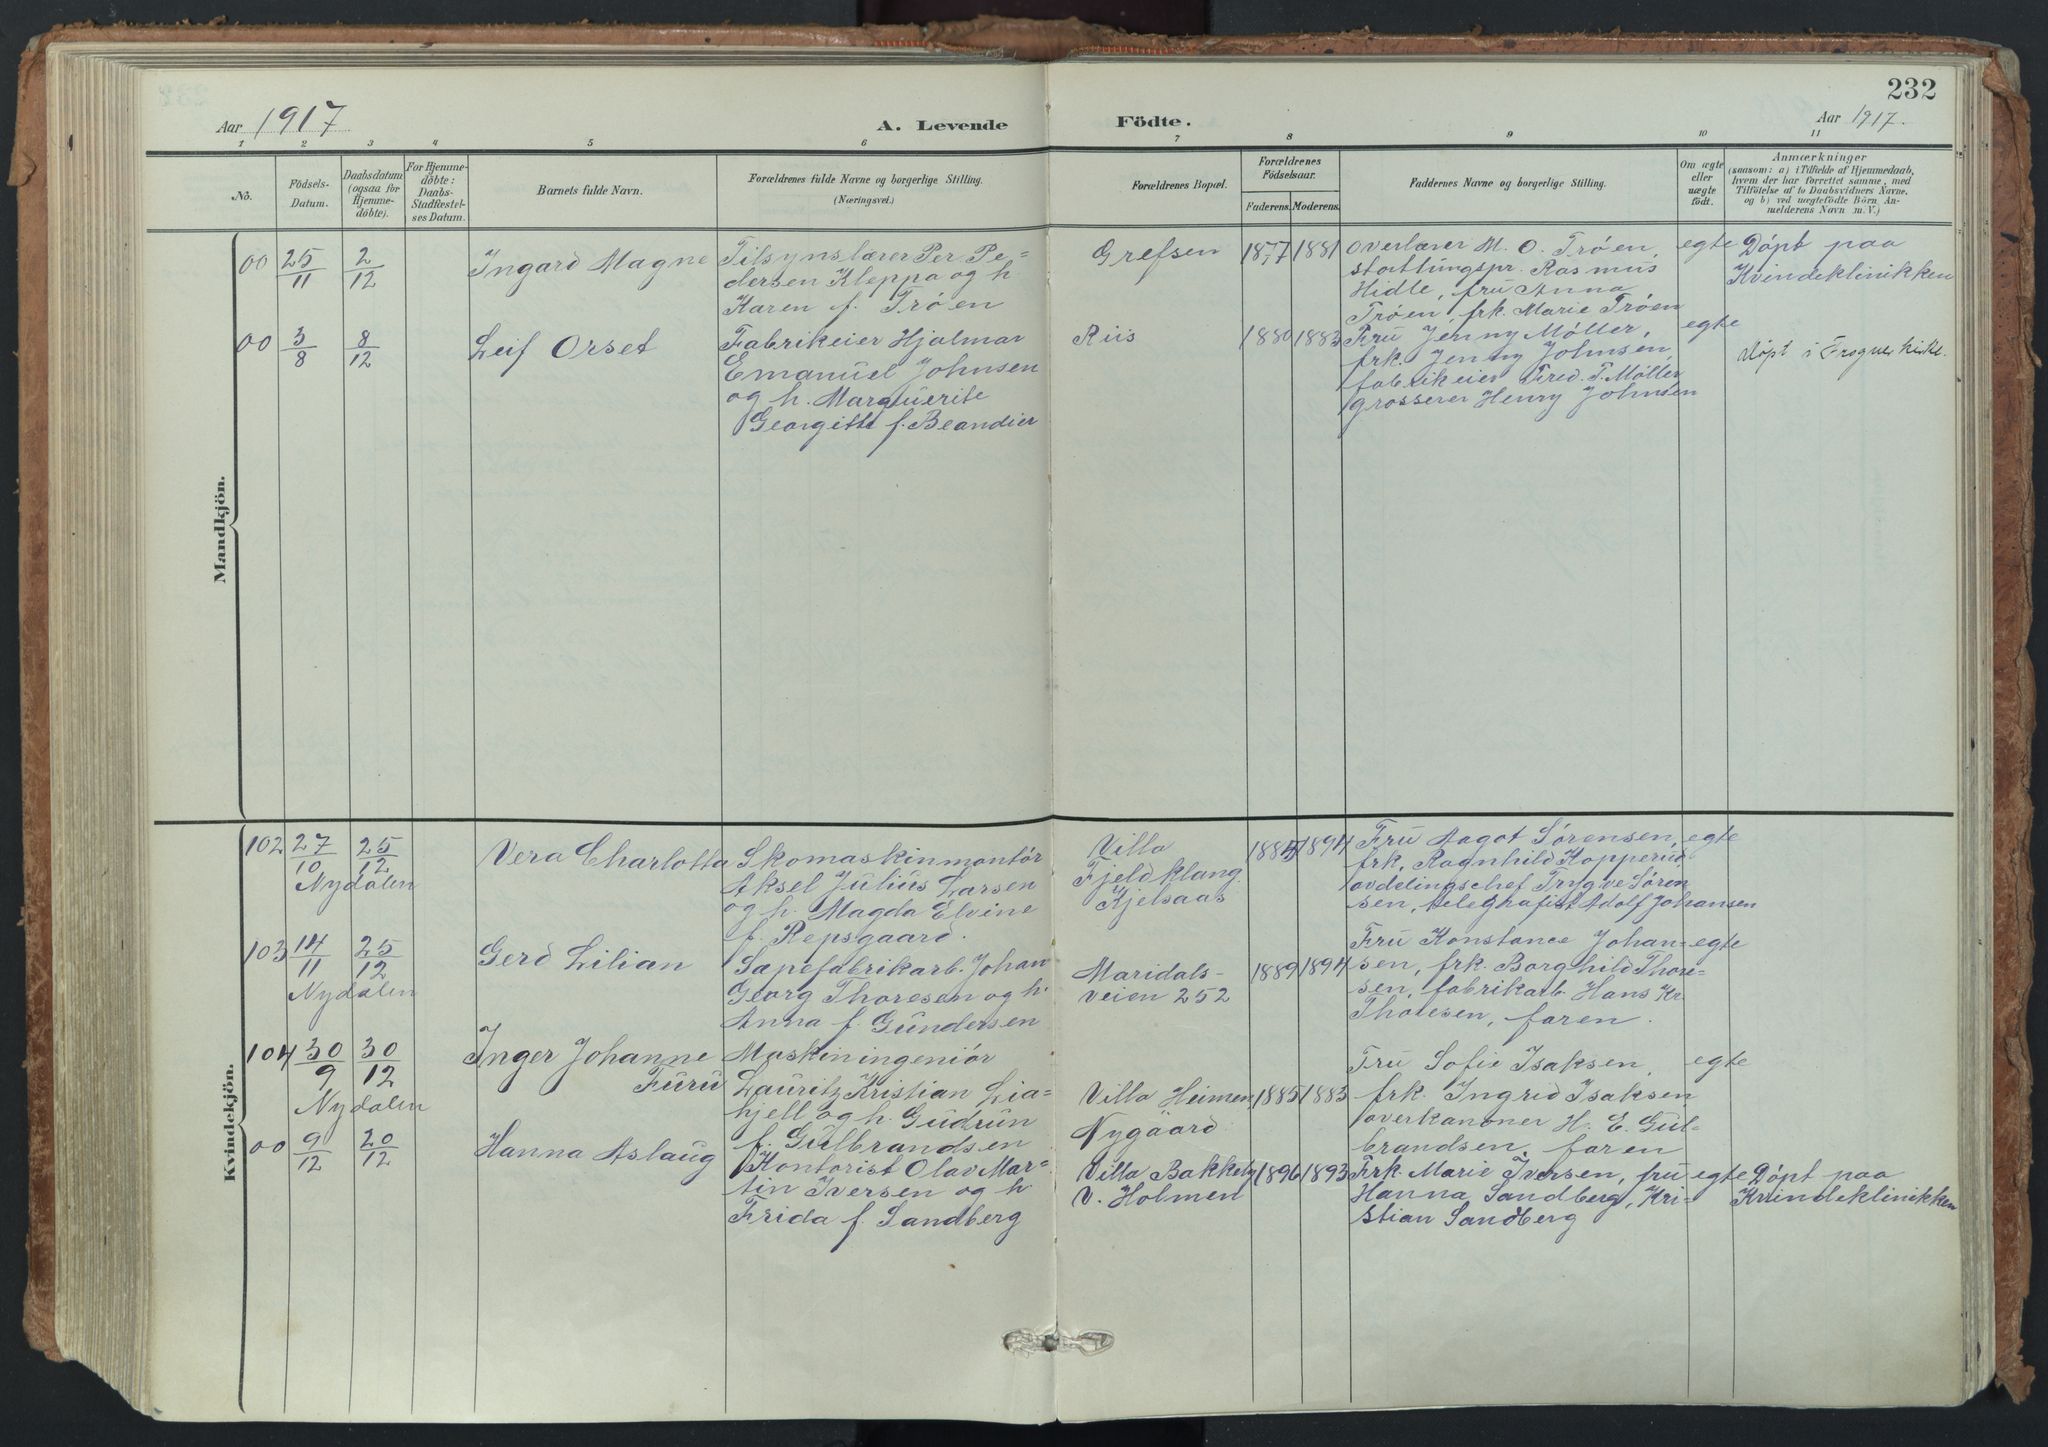 232
Aar 1917
A. Levende Födte.
Aar 1917.
1 2 3 4 5 6 7 8 9 10 11
No.
Födsels-
Datum.
Daabsdatum
(ogsaa for
Hjemme-
döbte).
For Hjemme-
döbte:
Daabs-
Stadfæstel-
ses Datum.
Barnets fulde Navn.
Forældrenes fulde Navne og borgerlige Stilling.
(Næringsvei.)
Forældrenes Bopæl.
Forældrenes
Födselsaar.
Faderens. Moderens.
Faddernes Navne og borgerlige Stilling.
Om ægte
eller
uægte
födt.
Anmærkninger
(saasom: a) i Tilfælde af Hjemmedaab,
hvem der har forrettet samme, med
Tilföielse af to Daabsvidners Navne,
og b) ved uægtefödte Börn An-
melderens Navn m. V.)
Mandkjön.
00 25/11 2/12
Ingard Magne
Tilsynslærer Per Pe-
dersen Kleppa og h
Karen f. Trøen
Grefsen
1877 1881
Overlærer M. O. Trøen,
stortlungspr. Rasmus
Hidle, fru Anna
Trøen, frk. Marie Trøen
egte
Døpt paa
Kvindeklinikken
00 3/8 8/12
Leif Orset
Fabrikeier Hjalmar
Emanuel Johnsen
og h. Marguerite
Georgitte f. Beandier
Riis
1880 1883
Fru Jenny Møller,
frk. Jenny Johnsen,
fabrikeier Fred. T. Møller
grosserer Henry Johnsen
egte
døpt i Frogner kirke.
Kvindekjön.
102 27/10 25/12
Nydalen
Vera Charlotta
Skomaskinmontör
Aksel Julius Larsen
og h. Magda Elvine
f. Repsgaard.
Villa
Fjeldklang.
Kjelsaas
1884 1894
Fru Aagot Sørensen,
frk. Ragnhild Kopperud
avdelingschef Trygve Søren
sen, telegrafist Adolf Johansen
egte
103 14/11 25/12
Nydalen
Gerd Lilian
Sæpefabrikarb. Johan
Georg Thoresen og h.
Anna f. Gundersen
Maridals-
veien 252
1889 1894
Fru Konstance Johan-
sen, frk. Borghild Thore-
sen, fabrikarb. Hans Kr.
Thoresen, faren.
egte
104 30/9 30/12
Nydalen
Inger Johanne
Furu
Maskiningeniör
Lauritz Kristian Lia-
hjell og h. Gudrun
f. Gulbrandsen
Villa Heimen
Nygaard
1885 1883
Fru Sofie Isaksen,
frk. Ingrid Isaksen
overkanoner H. E. Gul-
brandsen, faren
egte
00 9/12 20/12
Hanna Aslaug
Kontorist Olav Mar-
tin Iversen og h
Frida f. Sandberg
Villa Bakkely
v. Holmen
1896 1893
Frk. Marie Iversen, fru
Hanna Sandberg, Kri-
stian Sandberg
egte
Døpt paa
Kvindeklinikken